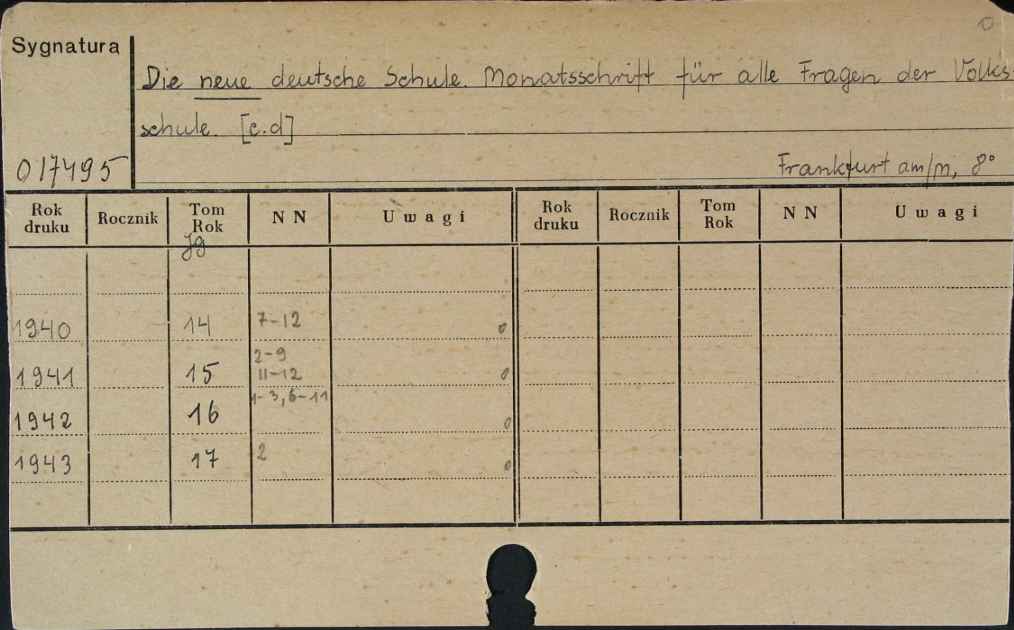 Sygnatura
Die neue deutsche Schule. Monatsschrift für alle Fragen der Volks-
schule. [c.d]
017495
Frankfurt am/m, 8°
Rok druku Rocznik Tom Rok NN Uwagi Rok druku Rocznik Tom Rok NN Uwagi
Jg
1940 14 7-12 0
1941 15 2-9 11-12 0
1942 16 1-3, 6-11 0
1943 17 2 0